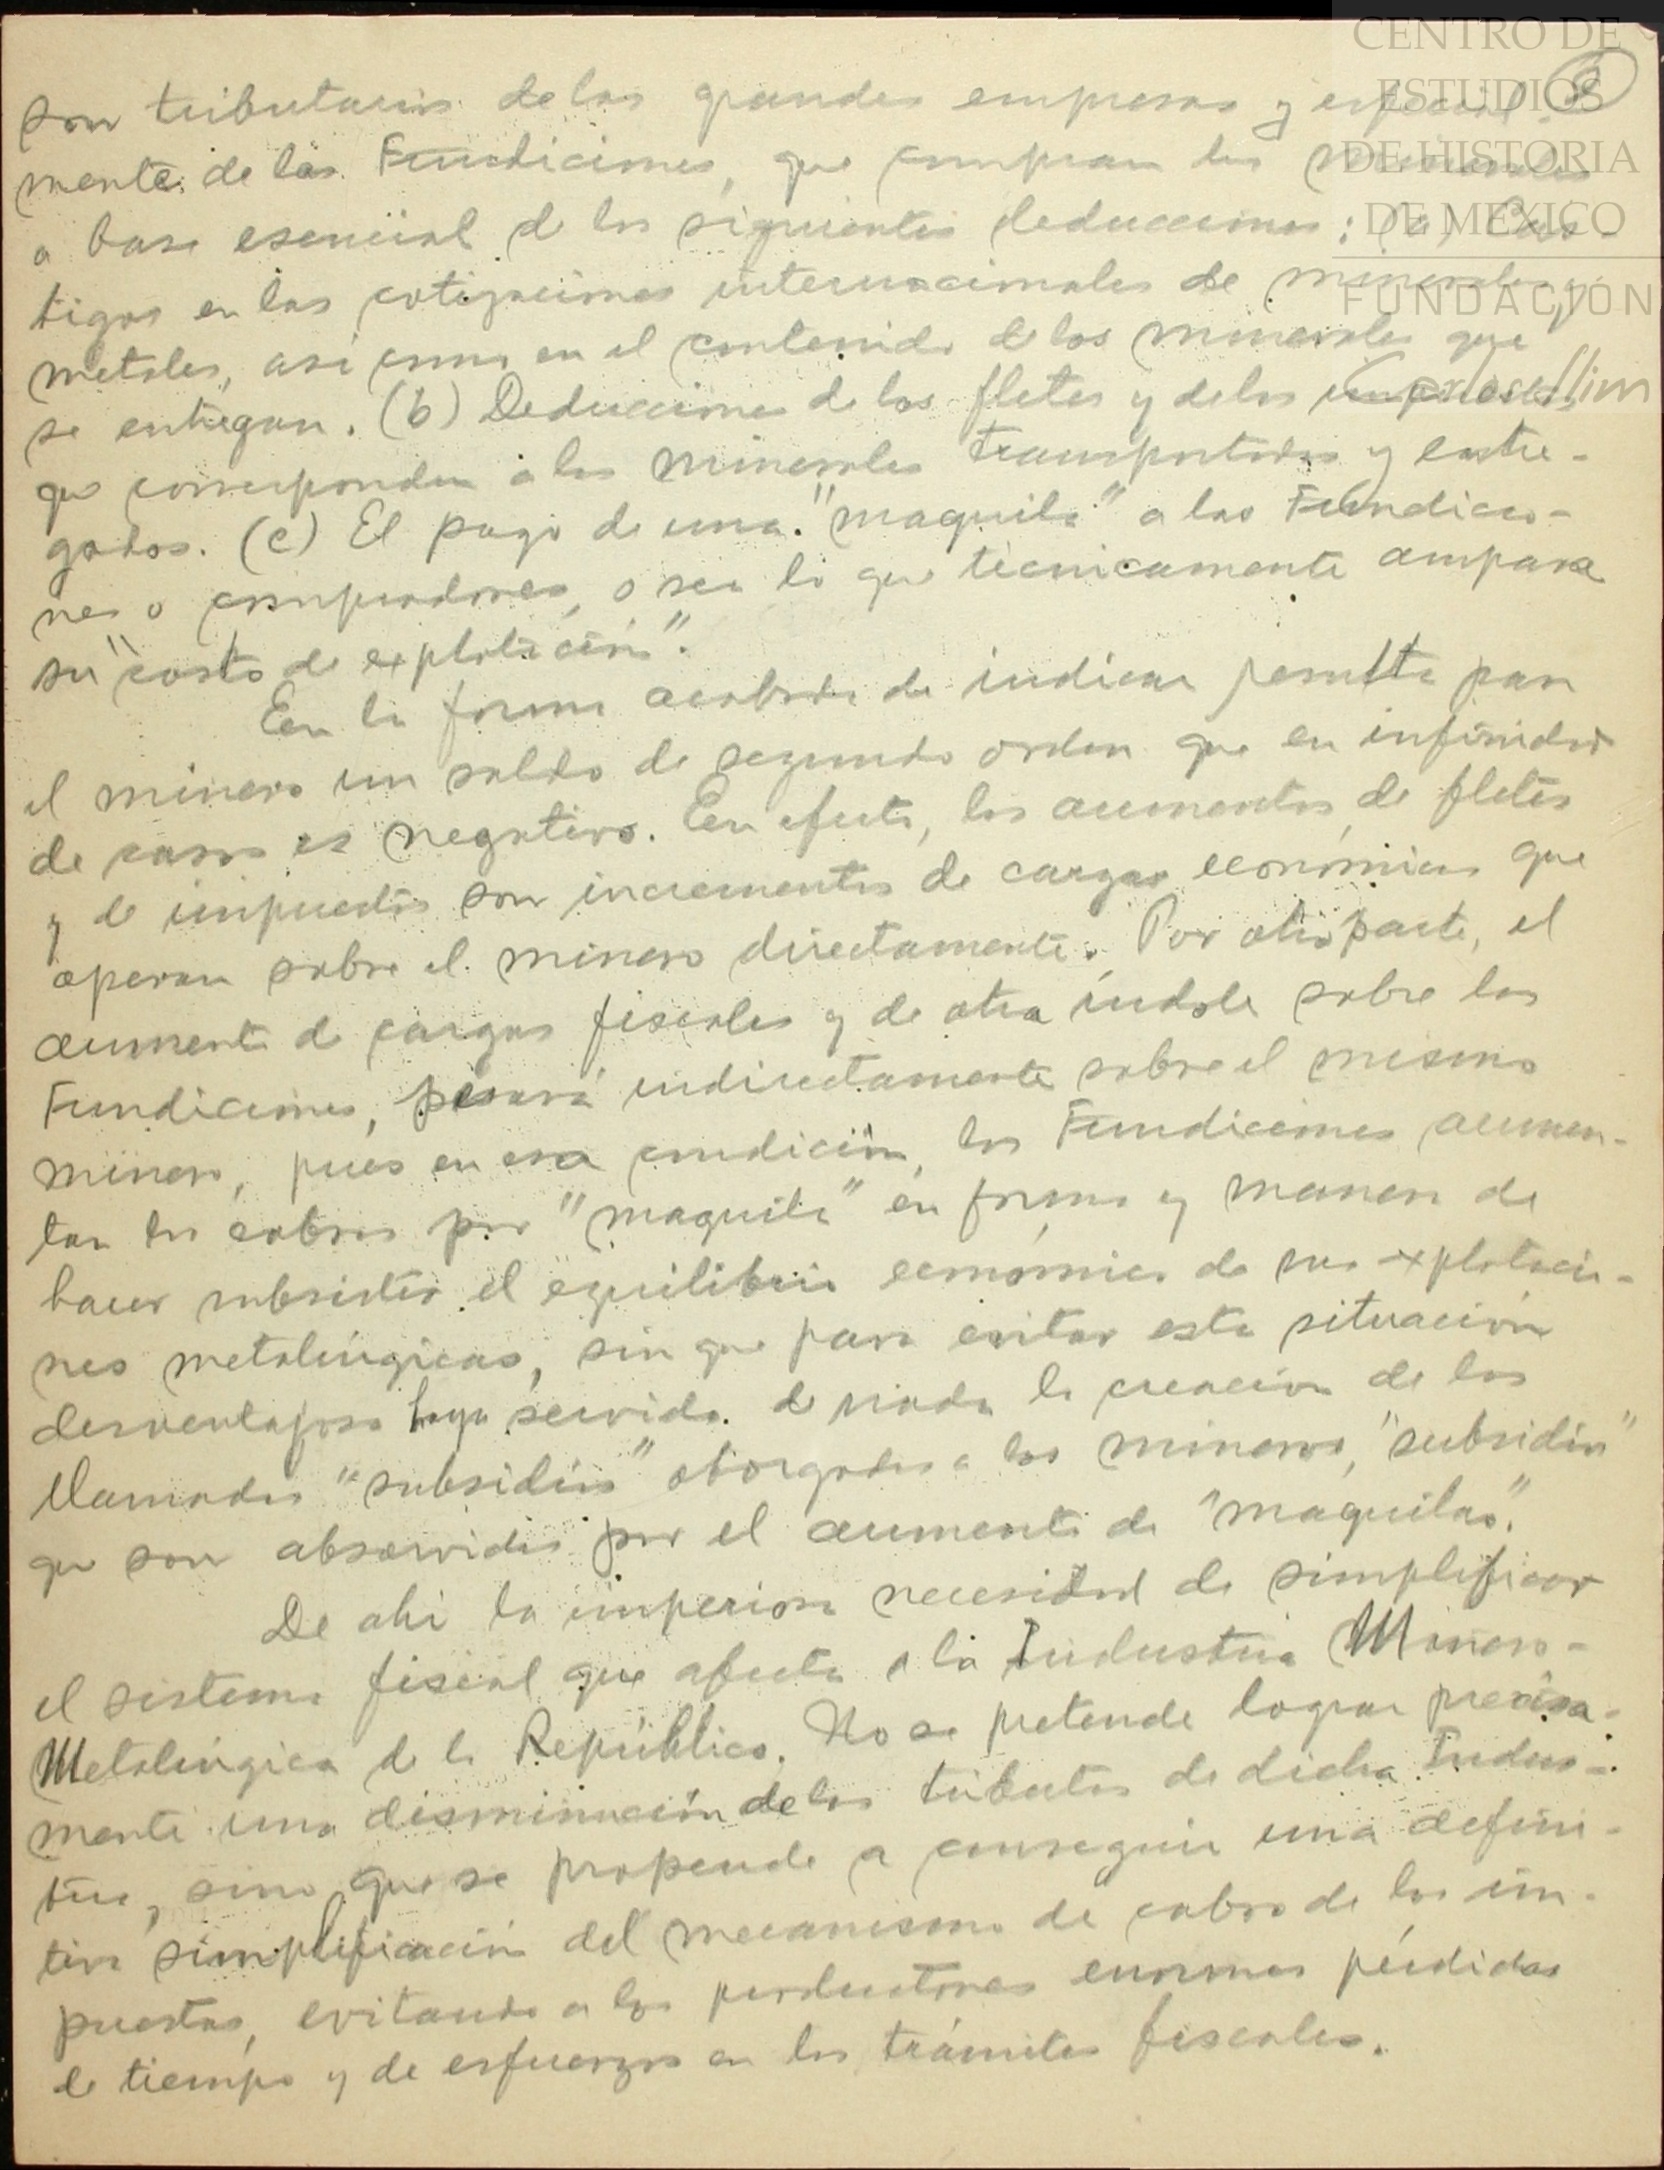 CENTRO DE
ESTUDIOS
DE HISTORIA
DE MEXICO
FUNDACIÓN
Carlos Slim
son tributarios de las grandes empresas y especial-
mente de las Fundiciones, que compran los minerales
a base esencial de las siguientes deducciones: (a) Cas-
tigos en las cotizaciones internacionales de minerales y
metales, así como en el contenido de los minerales que
se entregan. (b) Deducciones de los fletes y de los impuestos
que corresponden a los minerales transportados y entre-
gados. (c) El pago de una "maquila" a las Fundicio-
nes o compradores, o sea lo que técnicamente ampara
su "costo de explotación".
En la forma acabada de indicar resulta para
el minero un saldo de segundo orden que en infinidad
de casos es negativo. En efecto, los aumentos de fletes
y de impuestos son incrementos de cargas económicas que
operan sobre el minero directamente. Por otra parte, el
aumento de cargas fiscales y de otra índole sobre las
Fundiciones, pesará indirectamente sobre el mismo
minero, pues en esa condición, las Fundiciones aumen-
tan los cobros por "maquila" en forma y manera de
hacer subsistir el equilibrio económico de sus explotacio-
nes metalúrgicas, sin que para evitar esta situación
desventajosa haya servido de nada la creación de los
llamados "subsidios" otorgados a los mineros, "subsidios"
que son absorvidos por el aumento de "maquilas".
De ahí la imperiosa necesidad de simplificar
el sistema fiscal que afecta a la Industria Minero-
Metalúrgica de la República. No se pretende lograr precisa-
mente una disminución de los tributos de dicha Indus-
tria, sino que se propende a conseguir una defini-
tiva simplificación del mecanismo de cobro de los im-
puestos, evitando a los productores enormes pérdidas
de tiempo y de esfuerzos en los trámites fiscales.